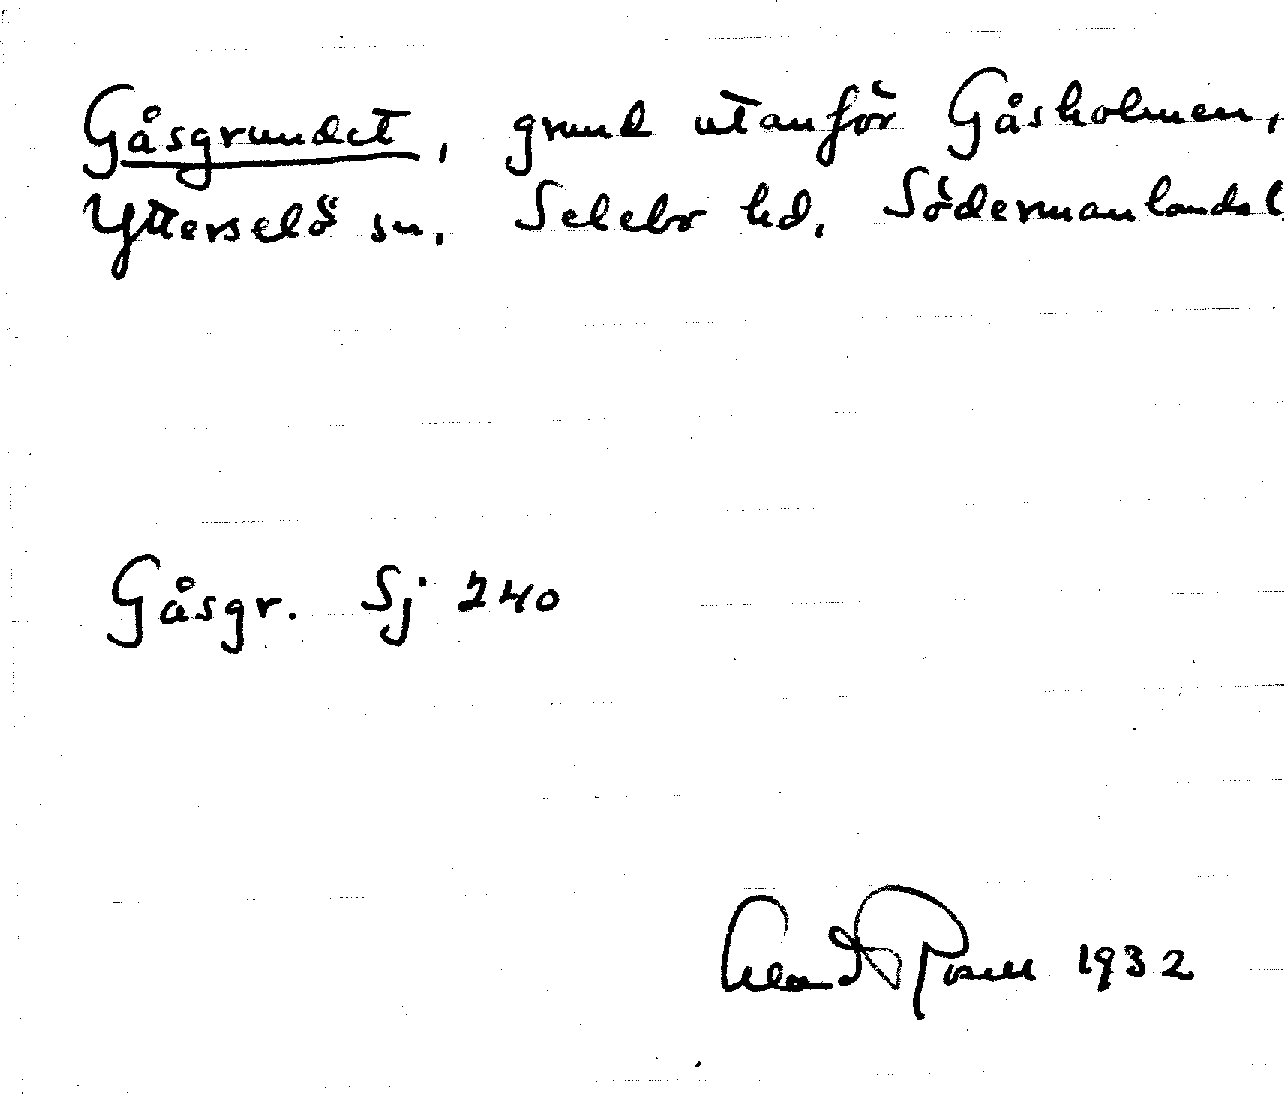 Gåsgrundet, grund utanför Gåsholmen,
Ytterselö sn. Selebo hd. Södermanlands l
Gåsgr. Sj 240
1932